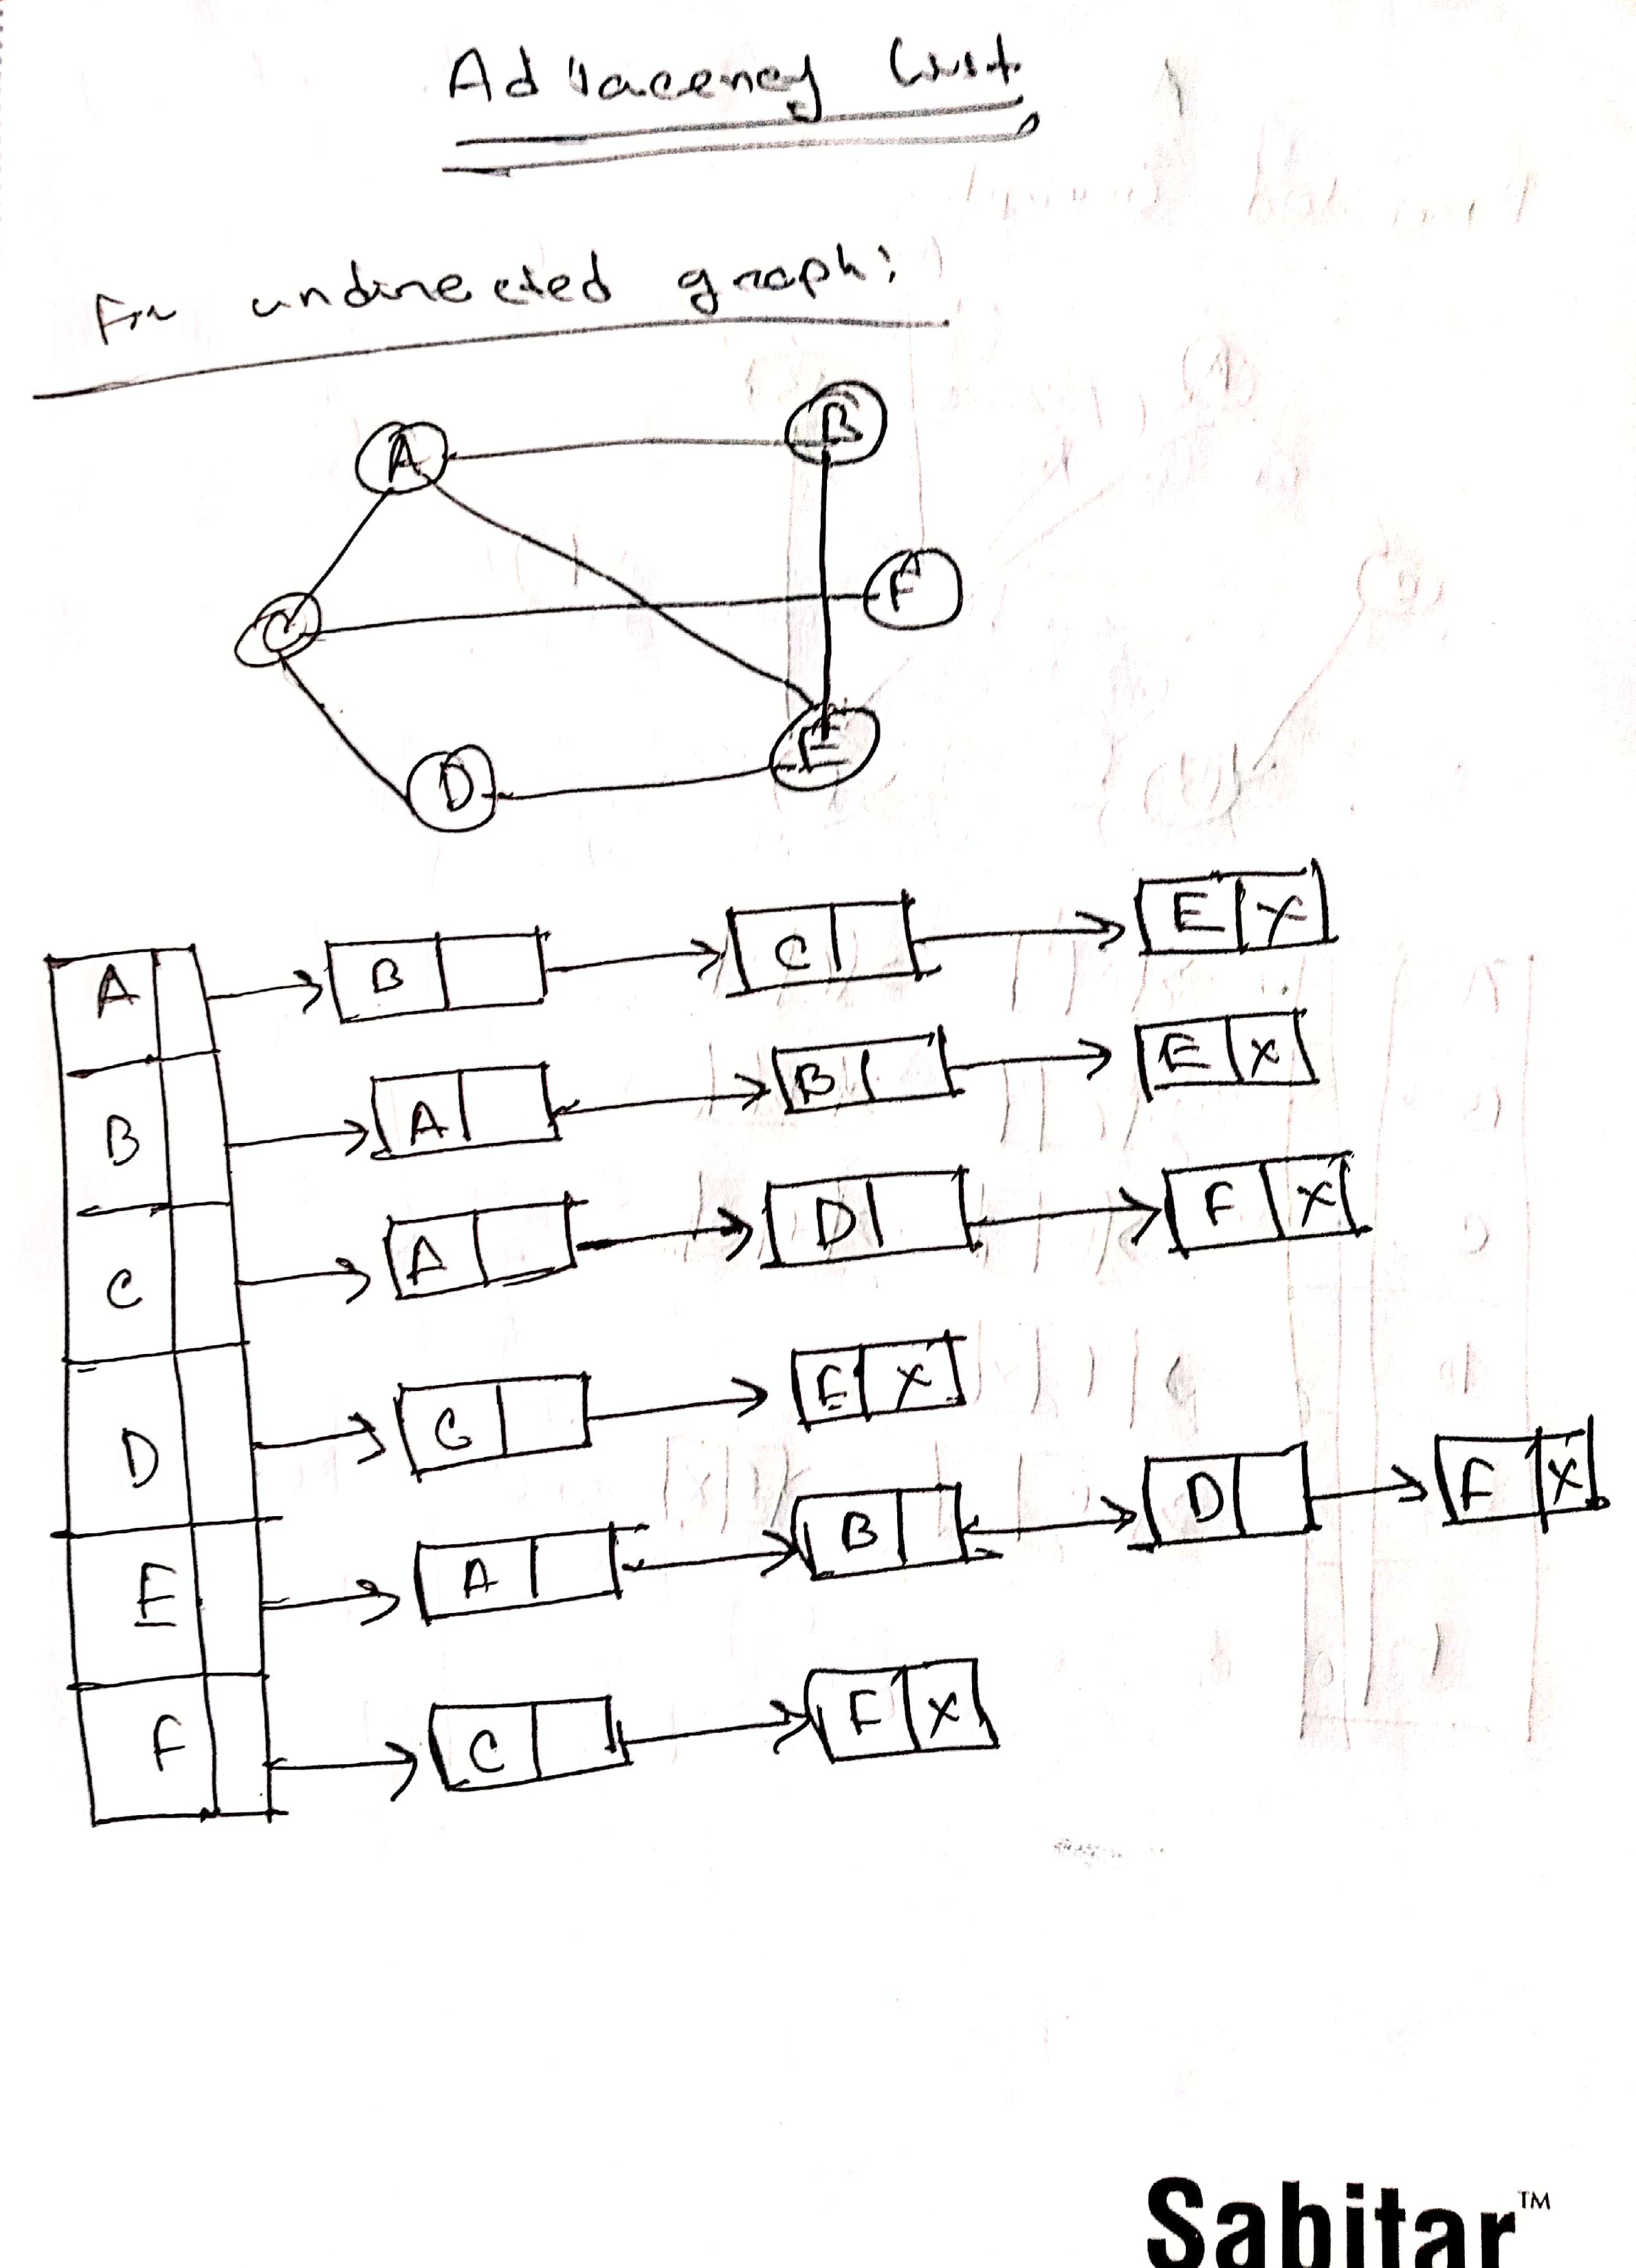 Adjacency List
For undirected graph:
A B
F
C
D E
A B C E X
B A B E X
C A D F X
D C E X
E A B D F X
F C F X
Sabitar™